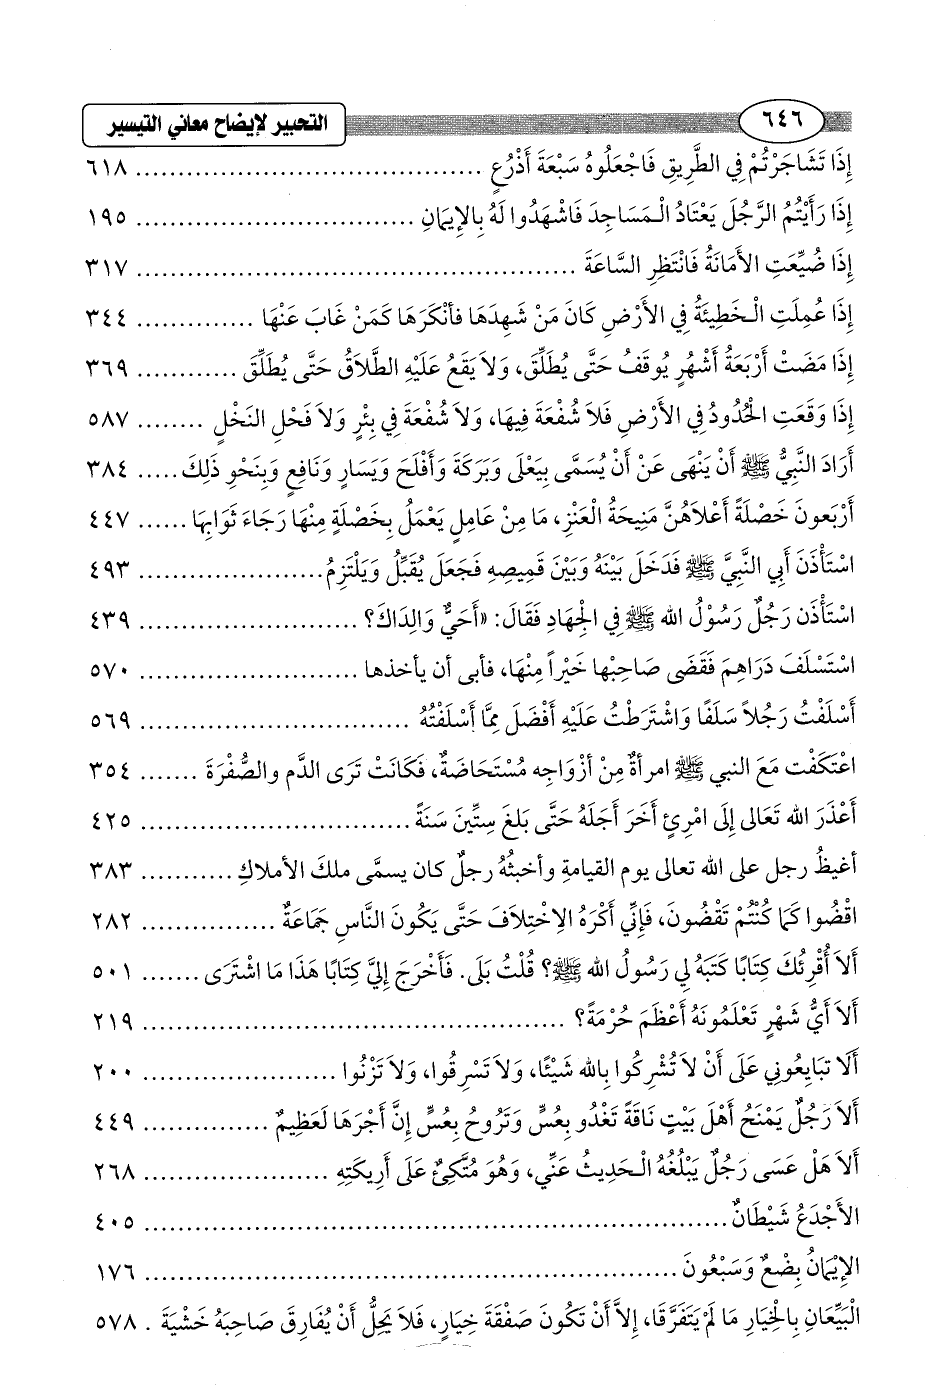 ٦٤٦ التحبير لإيضاح معاني التيسير
إِذَا تَشَاجَرْتُمْ فِي الطَّرِيقِ فَاجْعَلُوهُ سَبْعَةَ أَذْرُعٍ ........ ٦١٨
إِذَا رَأَيْتُمُ الرَّجُلَ يَعْتَادُ الْـمَسَاجِدَ فَاشْهَدُوا لَهُ بِالإِيمَانِ ........ ١٩٥
إِذَا ضُيِّعَتِ الأَمَانَةُ فَانْتَظِرِ السَّاعَةَ ........ ٣١٧
إِذَا عُمِلَتِ الْـخَطِيئَةُ فِي الأَرْضِ كَانَ مَنْ شَهِدَهَا فأنْكَرَهَا كَمَنْ غَابَ عَنْهَا ........ ٣٤٤
إِذَا مَضَتْ أَرْبَعَةُ أَشْهُرٍ يُوقَفُ حَتَّى يُطَلِّقَ، وَلاَ يَقَعُ عَلَيْهِ الطَّلاَقُ حَتَّى يُطَلِّقَ ........ ٣٦٩
إِذَا وَقَعَتِ الْحُدُودُ فِي الأَرْضِ فَلاَ شُفْعَةَ فِيهَا، وَلاَ شُفْعَةَ فِي بِئْرٍ وَلاَ فَحْلِ النَخْلِ ........ ٥٨٧
أَرَادَ النَّبِيُّ ﷺ أَنْ يَنْهَى عَنْ أَنْ يُسَمَّى بِيَعْلَى وَبَرَكَةَ وَأَفْلَحَ وَيَسَارٍ وَنَافِعٍ وَبِنَحْوِ ذَلِكَ..... ٣٨٤
أَرْبَعونَ خَصْلَةً أَعْلاَهُنَّ مَنِيحَةُ العَنْزِ، مَا مِنْ عَامِلٍ يَعْمَلُ بِخَصْلَةٍ مِنْهَا رَجَاءَ ثَوَابِهَا ...... ٤٤٧
اسْتَأْذَنَ أَبِي النَّبِيَّ ﷺ فَدَخَلَ بَيْنَهُ وَبَيْنَ قَمِيصِهِ فَجَعَلَ يُقَبِّلُ وَيَلْتَزِمُ........ ٤٩٣
اسْتَأْذَن رَجُلٌ رَسُوْلُ الله ﷺ فِي الْجِهَادِ فَقَالَ: «أَحَيٌّ وَالِدَاكَ؟ ........ ٤٣٩
اسْتَسْلَفَ دَرَاهِمَ فَقَضَى صَاحِبْها خَيْراً مِنْهَا، فأبى أن يأخذها ........ ٥٧٠
أَسْلَفْتُ رَجُلاً سَلَفًا وَاشْتَرَطْتُ عَلَيْهِ أَفْضَلَ مِمَّا أَسْلَفْتُهُ ........ ٥٦٩
اعْتَكَفْت مَعَ النبي ﷺ امرأةٌ مِنْ أزْوَاجِه مُسْتَحَاضَةٌ، فَكَانَتْ تَرَى الدَّم والصُّفْرَةَ ....... ٣٥٤
أَعْذَرَ الله تَعَالى إِلَى امْرِئٍ أَخَرَ أَجَلَهُ حَتَّى بَلغَ سِتِّينَ سَنَةً ........ ٤٢٥
أغيظُ رجل على الله تعالى يوم القيامةِ وأخبثُهُ رجلٌ كان يسمَّى ملكَ الأملاكِ ........ ٣٨٣
اقْضُوا كَمَا كُنْتُمْ تَقْضُونَ، فَإِنِّي أَكْرَهُ الاِخْتِلاَفَ حَتَّى يَكُونَ النَّاسِ جَمَاعَةٌ ........ ٢٨٢
أَلاَ أُقْرِئُكَ كِتَابًا كَتَبَهُ لِي رَسُولُ الله ﷺ؟ قُلْتُ بَلَى. فَأَخْرَجَ إِلَيَّ كِتَابًا هَذَا مَا اشْتَرَى ....... ٥٠١
أَلاَ أَيُّ شَهْرٍ تَعْلَمُونَهُ أَعْظَمَ حُرْمَةً؟ ........ ٢١٩
أَلَا تبَايِعُوني عَلَى أَنْ لاَ تُشْرِكُوا بِالله شَيْئًا، وَلاَ تَسْرِقُوا، وَلاَ تَزْنُوا ........ ٢٠٠
أَلاَ رَجُلٌ يَمْنَحُ أَهْلَ بَيْتٍ نَاقَةً تَغْدُو بِعُسٍّ وَتَرُوحُ بِعُسٍّ إِنَّ أَجْرَهَا لَعَظِيمٌ ........ ٤٤٩
أَلاَ هَلْ عَسَى رَجُلٌ يَبْلُغُهُ الْـحَدِيثُ عَنِّي، وَهُوَ مُتَّكِئٌ عَلَى أَرِيكَتِهِ ........ ٢٦٨
الأَجْدَعُ شَيْطَانٌ ........ ٤٠٥
الإِيْمَانُ بِضْعٌ وَسَبْعُونَ ........ ١٧٦
الْبَيِّعَانِ بِالْخِيَارِ مَا لَمْ يَتَفَرَّقَا، إِلاَّ أَنْ تَكُونَ صَفْقَةَ خِيَارٍ، فَلاَ يَحِلُّ أَنْ يُفَارِقَ صَاحِبَهُ خَشْيَةَ . ٥٧٨